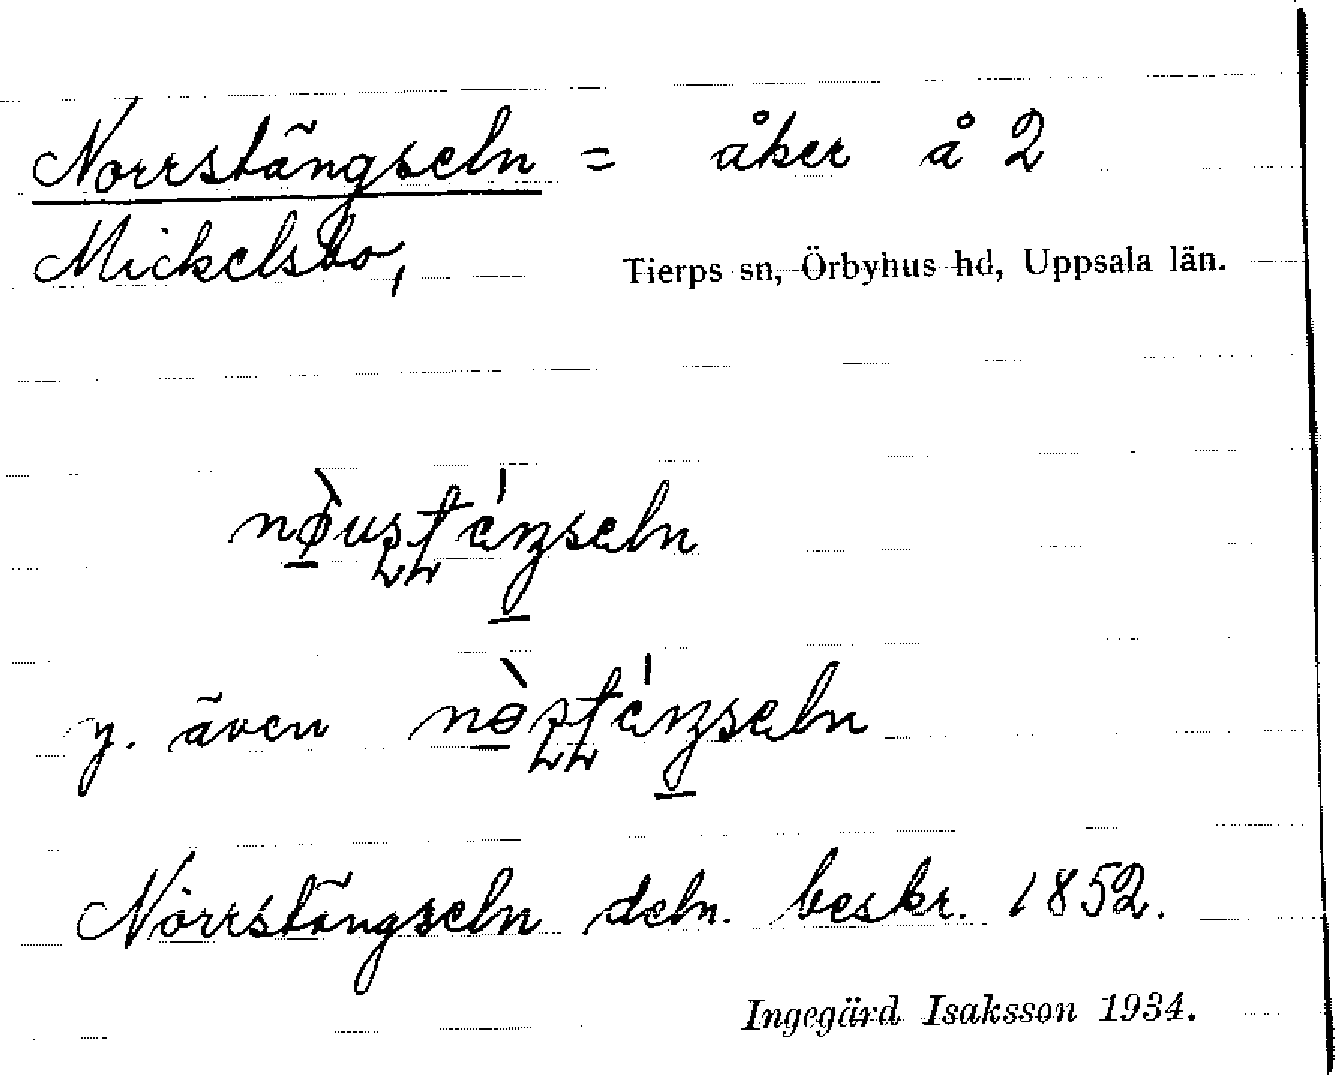 Norrstängseln = åker å 2
Mickelsbo,
Tierps sn, Örbyhus hd, Uppsala län.
y. även
Nörrstängseln deln. beskr. 1852.
Ingegärd Isaksson 1934.